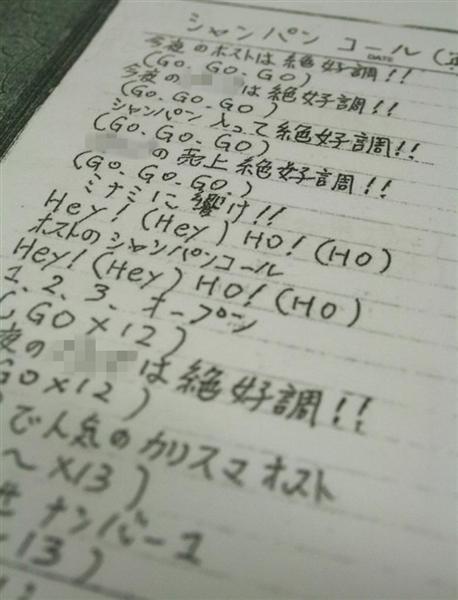 シャンパン コール(
DATE
今夜のホストは絶好調!!
(GO、GO、GO)
今夜の は絶好調!!
(GO、GO、GO)
シャンパン入って絶好調!!
(GO、GO、GO)
の売上絶好調!!
(GO、GO、GO、)
ミナミに響け!!
Hey!(Hey)HO!(HO)
ホストのシャンパンコール
Hey!(Hey)HO!(HO)
1、2、3、オープン
GO×12)
夜の は絶好調!!
GO×12)
で人気のカリスマホスト
〜×13)
ナンバー1
13)